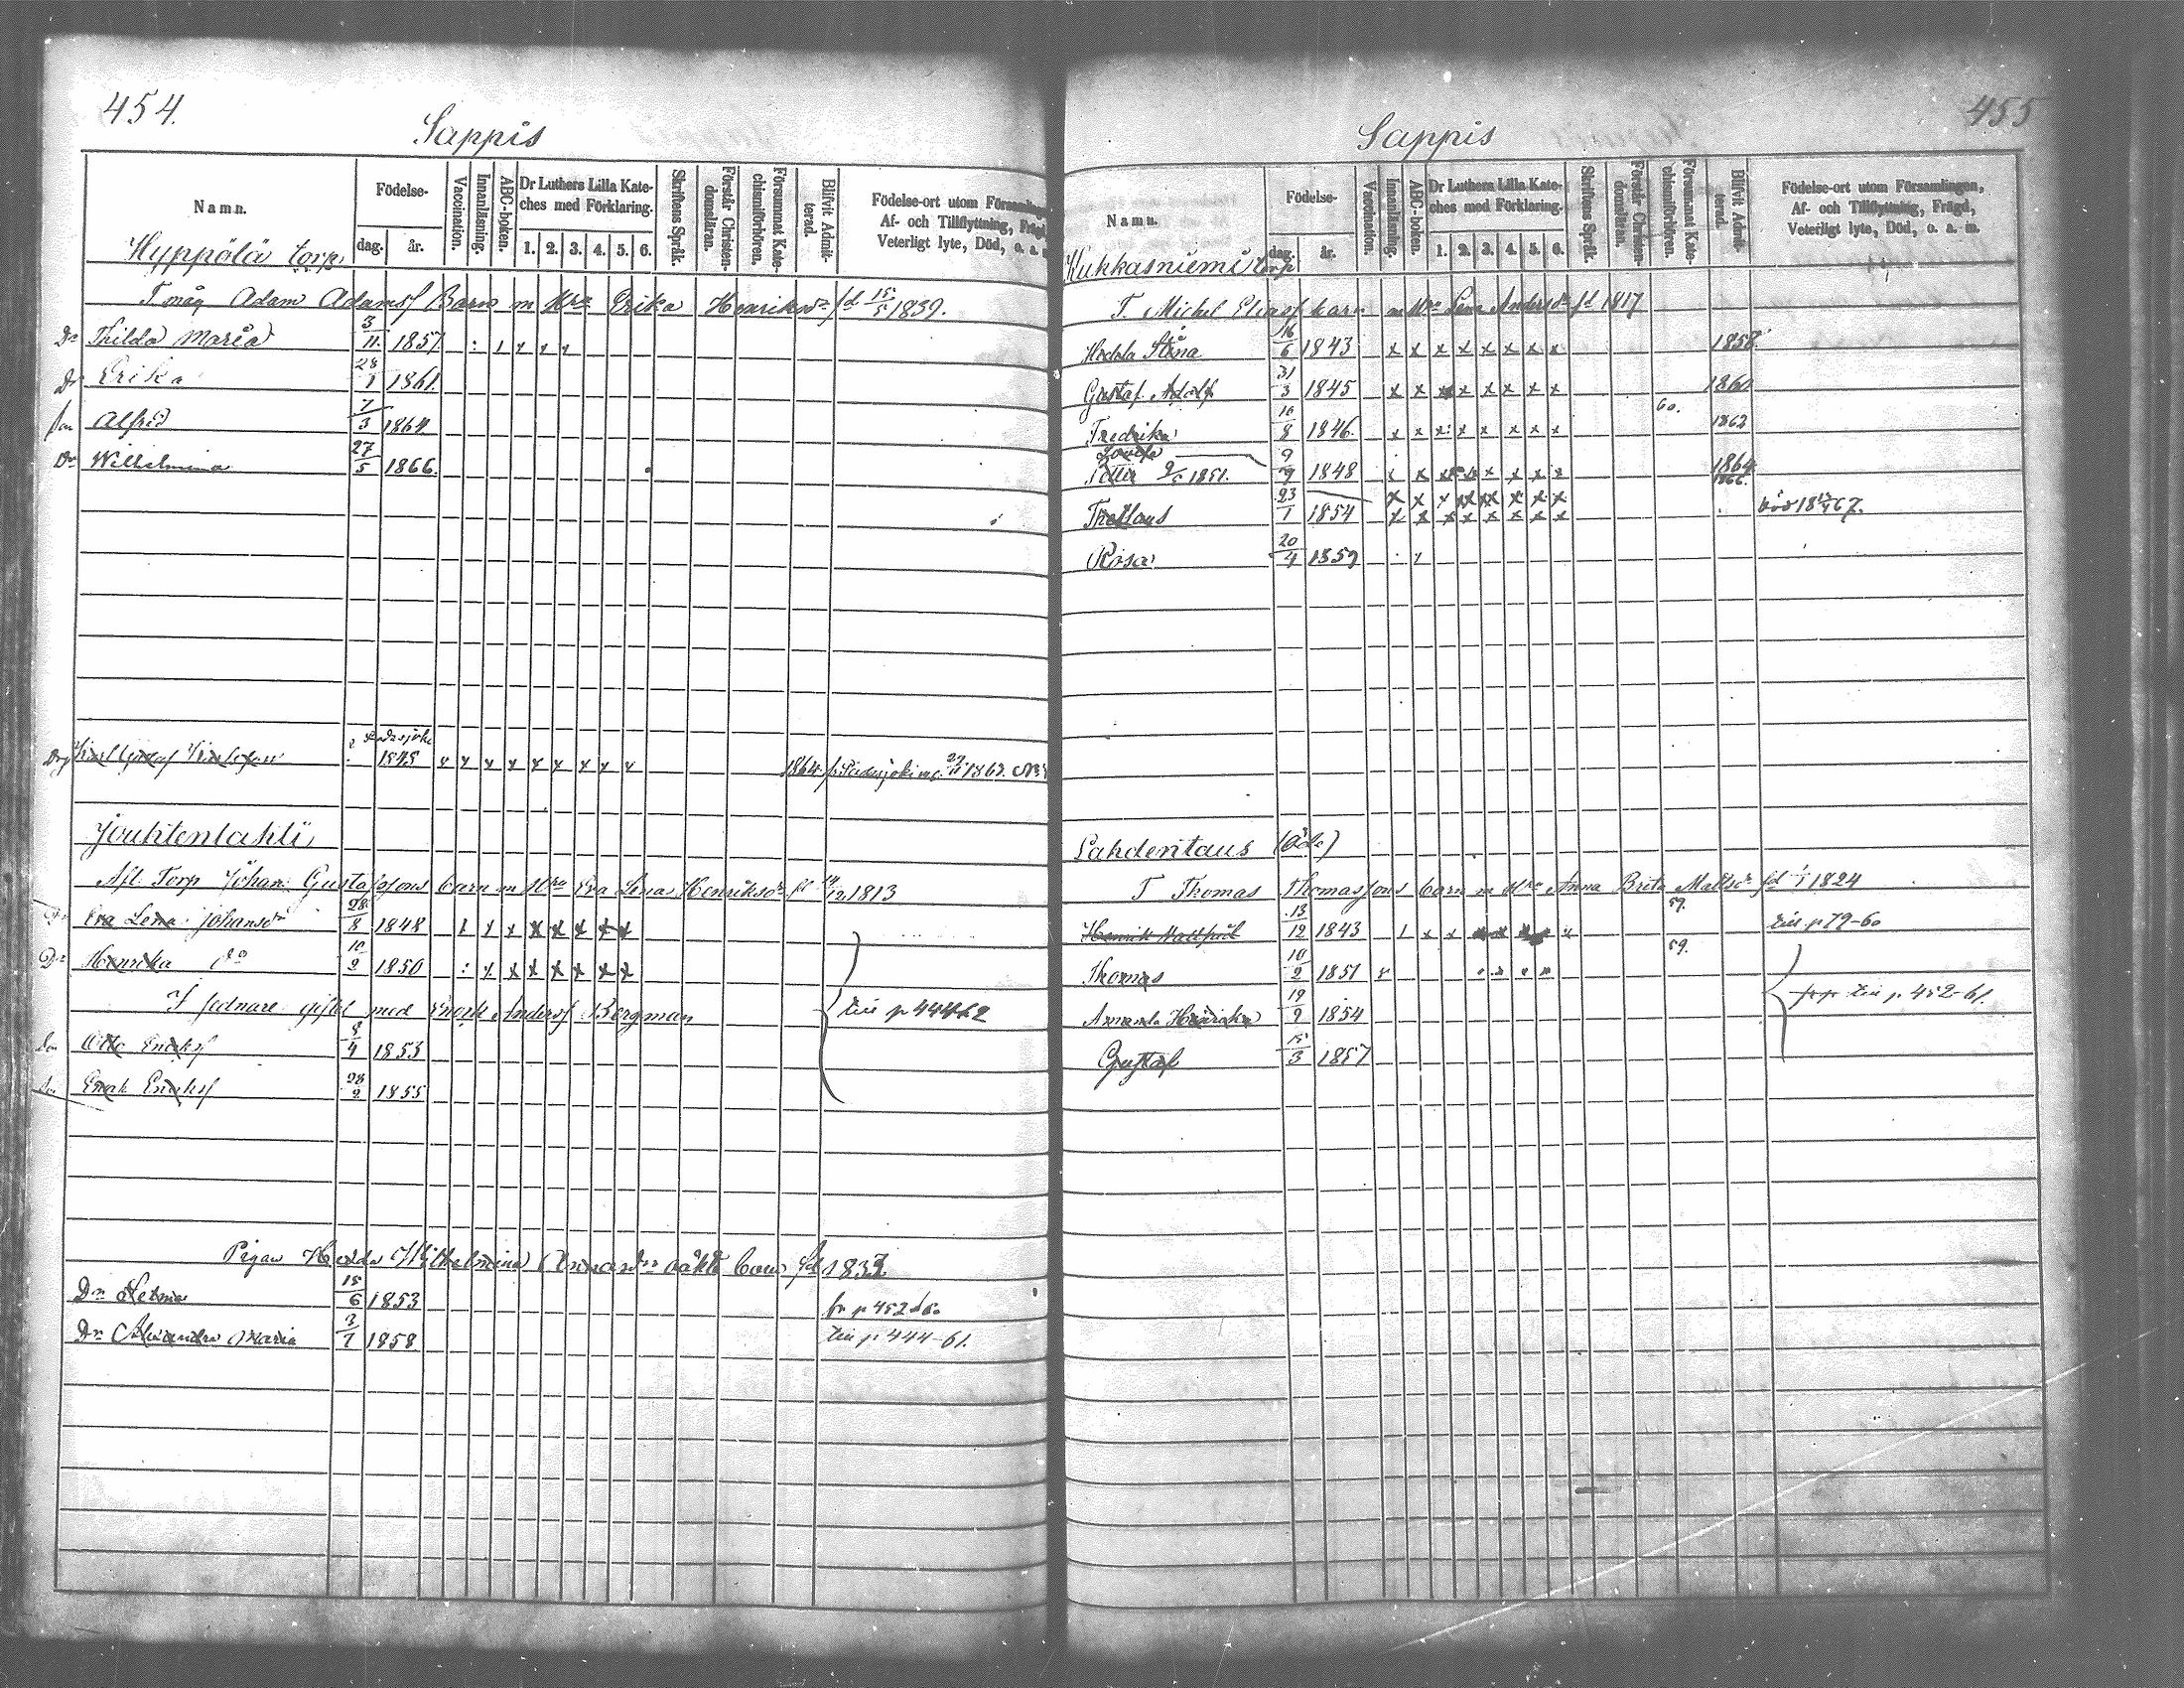 454.
Sappis
Namn.
Födelse-
dag.
år.
Vaccination.
Innanläsning.
ABC-boken.
Dr Luthers Lilla Kate-
ches med Förklaring.
1. 2. 3. 4. 5. 6.
Skriftens Språk.
Förstår Christen-
domsläran.
Försummat Kate-
chismiförhören.
Blifvit Admit-
terad.
Födelse-ort utom Församlingen,
Af- och Tillflyttning, Frägd,
Veterligt lyte, Död, o. a. m.
Hyppölä torp
T måg Adam Adamsf Barn m Hra Erika Henriksdr fd 15/5 1839.
Dr Thilda Maria 3/11 1857
Dr Erika 28/1 1861.
Son Alfred 7/3 1864
Dr Wilhelmina 27/5 1866.
Padasjoki
Karl Gustaf 1845 1864
Jouhtenlahti
Afl. Torp Johan Gustafssons barn m Hra Eva Lena Henriksdr 1813
Eva Lena Johansdr 28/8 1848
Dr Henrika do 10/2 1850
I sednare giftet med Enok Andersf Bergman
till p 444-62
Son Otto Enoksf 8/4 1853
Enok Enoksf 28/2 1855
Pigan Hedda Wilhelmina oäkta barn fd 1832
Dr Selma 15/6 1853 fr p 452
Dr Alexandra Maria 3/7 1858 till p 444-61.
455
Sappis
Namn.
Födelse-
dag.
år.
Vaccination.
Innanläsning.
ABC-boken.
Dr Luthers Lilla Kate-
ches med Förklaring.
1. 2. 3. 4. 5. 6.
Skriftens Språk.
Förstår Christen-
domsläran.
Försummat Kate-
chismiförhören.
Blifvit Admit-
terad.
Födelse-ort utom Församlingen,
Af- och Tillflyttning, Frägd,
Veterligt lyte, Död, o. a. m.
Kukkasniemi torp
T. Michel Eliasf barn m Hra Lena Andersdr fd 1817
Hedda Stina 16/6 1843 1858
Gustaf Adolf 31/3 1845 1860
Fredrika 16/8 1846. 60. 1862
1851. 9/9 1848 1864
23/1 1854 död 67.
Rosa 20/4 1859
Lahdentaus (Öde)
T Thomas Thomassons barn m Hra Anna Brita Mattsdr fd 1824
Henrik 13/12 1843 59. till p 79-60
Thomas 10/2 1851 59.
Amanda Henrika 19/2 1854 till p. 452-61.
Gustaf 15/3 1857